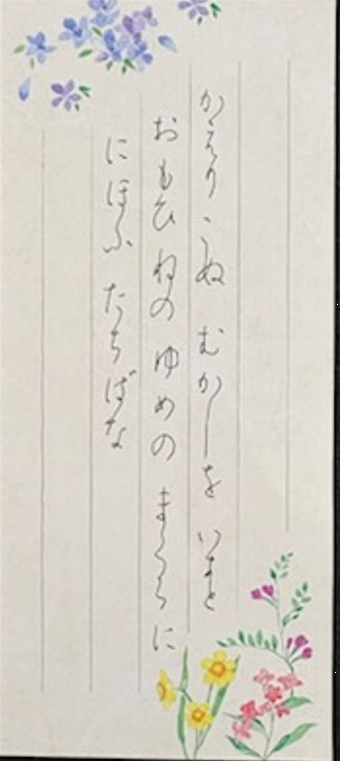 かえりこぬ むかしを いまと
おもひねの ゆめの まくらに
にほふ たちばな